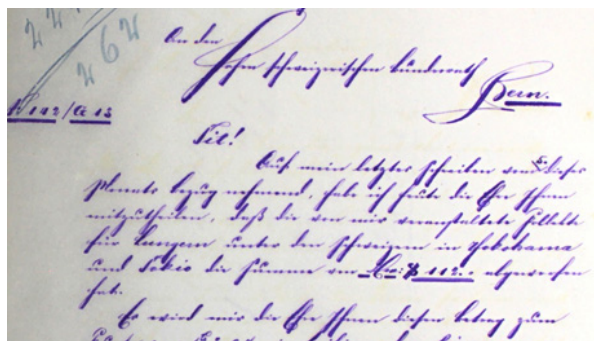 An den
Hohen schweizerischen Bundesrath
Bern.
№ 142/A 13
Tit!
Auf mein letztes Schreiben vom dieses
Monats bezug nehmend, habe ich heute die Ehre Ihnen
mitzutheilen, daß die von mir veranstaltete Collekte
für Lungern unter den Schweizern in Yokohama
und Tokio die Summe von 112.- abgeworfen
hat.
Es wird mir die Ehre Ihnen diesen Betrag zum